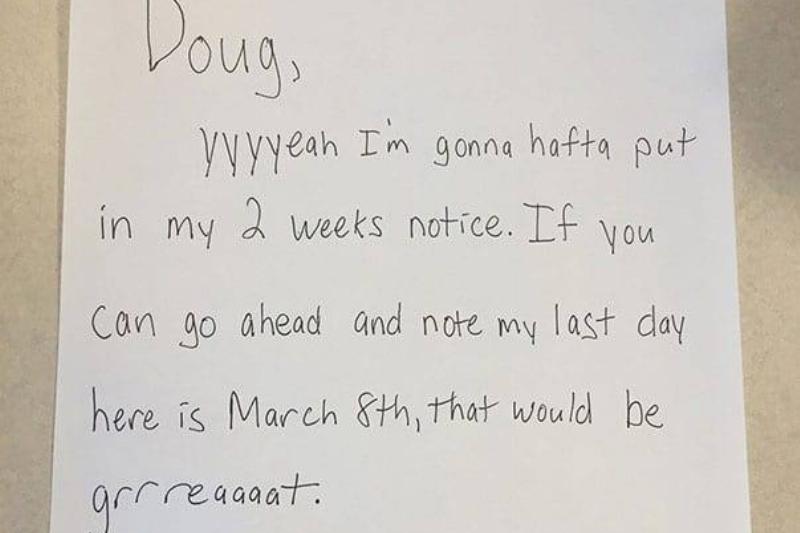 Doug,
yyyyeah I'm gonna hafta put
in my 2 weeks notice. If you
can go ahead and note my last day
here is March 8th, that would be
grrreaaaat.